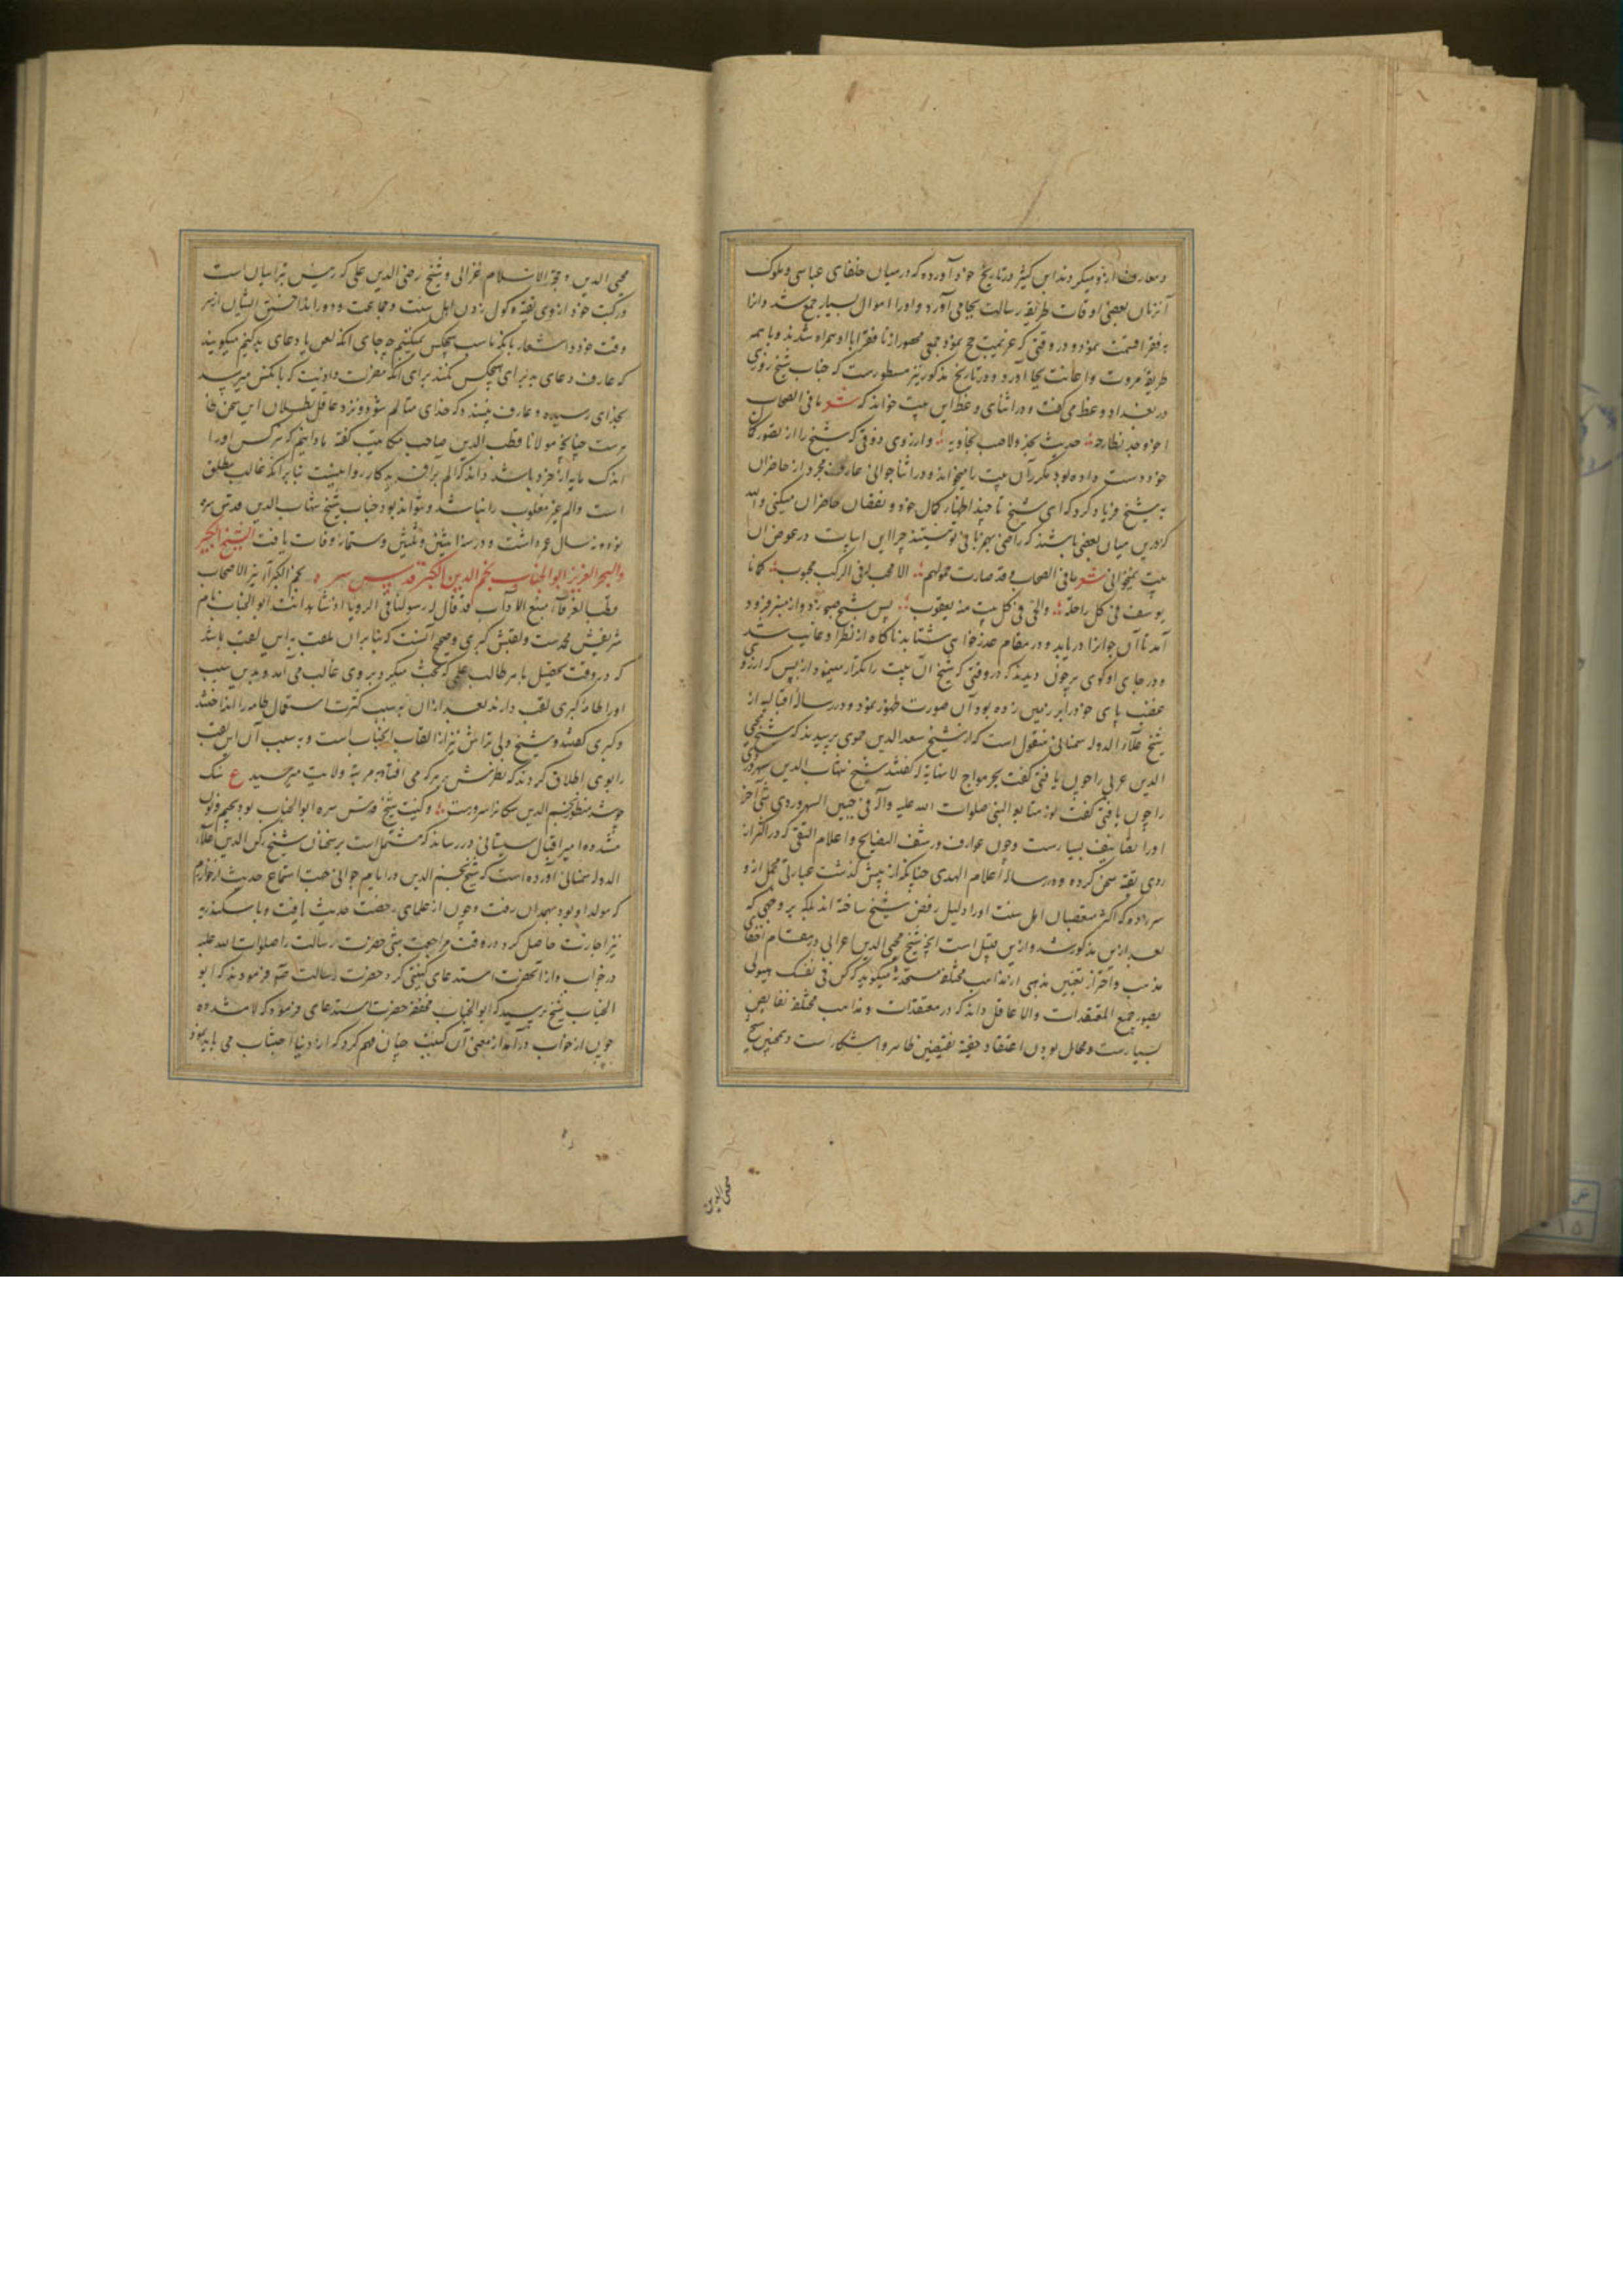 و معارف ازو میکردند ابن کثیر در تاریخ خود آورده که در میان خلفای عباسی و ملوک
آنزمان بعضی اوقات طریقه رسالت بجا می آورد و او را اموال بسیار جمع شد و آنرا
به فقرا قسمت نمود و در وقتی که عزیمت حج نمود جمعی از فقرا با او همراه شدند و با همه
طریقه مروت و اعانت بجا آورد و در تاریخ مذکور نیز مسطورست که جناب شیخ روزی
در بغداد وعظ می گفت و در اثنای وعظ این بیت خواند که شعر ما فی الصحاب
اخو وجد نطارحه حدیث نجد ولا صب نجاریه و از روی ذوقی که شیخ را از تصور کمال
خود دست داده بود مکرر آن بیت را میخواند و در اثنا جوانی عارف مجرد از حاضران
به شیخ فریاد کرد که ای شیخ تا چند اظهار کمال خود و نقصان حاضران میکنی والله
که درین میان بعضی باشند که راضی بهمزبانی تو نیستند چرا این ابیات در عوض آن
بیت نمیخوانی شعر ما فی الصحاب وقد صارت حمولهم الا محب له فی الرکب محبوب کانما
یوسف فی کل راحلة والحی فی کل بیت منه یعقوب پس شیخ صیحه زد و از منبر فرود
آمد تا آن جوانرا دریابد و در مقام عذرخواهی شتابد ناگاه از نظر او غایب شد
و در جای او گوی پرخون دیدند که در وقتی که شیخ آن بیت را تکرار مینمود از بس که از رو
غضب پای خود را بر زمین زده بود آن صورت ظهور نمود و در رساله اقبالیه از
شیخ علاء الدوله سمنانی منقول است که از شیخ سعد الدین حموی پرسیدند که شیخ محیی
الدین عربی را چون یافتی گفت بحر مواج لا نهایة له گفتند شیخ شهاب الدین سهروردی
را چون یافتی گفت نور متابعة النبی صلوات الله علیه وآله فی جبین السهروردی شئ آخر
او را تصانیف بسیارست و چون عوارف و رشف النصایح و اعلام التقی که در اکثر از
روی تقیه سخن کرده و در رساله اعلام الهدی چنانکه از پیش گذشت عبارتی مجمل ازو
سرزده که اکثر متعصبان اهل سنت او را دلیل رفض شیخ ساخته اند بلکه بر وجهی که
بعد ازین مذکور شد و ازین قبیل است آنچه شیخ محیی الدین اعرابی در مقام اخفای
مذهب و احتراز تعیین مذهبی از مذاهب مختلفه میگوید که کن فی نفسک هیولی
لصور جمیع المعتقدات والا عاقل داند که در معتقدات و مذاهب مختلفه نقایض
بسیارست و محال بودن اعتقاد حقیة نقیضین ظاهر و آشکارست و همچنین شیخ
محیی الدین
محیی الدین و حجة الاسلام غزالی و شیخ رضی الدین علی که رئیس تبراییان است
در کتب خود از روی تقیه و کول زدن اهل سنت و جماعت و دور انداختن ایشان از سر
وقت خود اشعار بآنکه ما سب هیچکس نمیکنیم چه جای آنکه لعن یا دعای بد کنیم میگویند
که عارف دعای بد برای هیچکس نکند برای آنکه مضرت و اذیت که بآنکس میرسد
بخدای رسیده و عارف نپسندد که خدای متالم شود و نزد عاقل بطلان این سخن ظا
هرست چنانچه مولانا قطب الدین صاحب مکاتیب گفته ما دانیم که هر کس او را
اندک مایه از خرد باشد داند که الم بر آفریدگار روا نیست بنابر آنکه غالب مطلق
است و الم غیر مغلوب را نباشد و نتواند بود جناب شیخ شهاب الدین قدس سره
نود و نه سال عمر داشت و در سنه اثنین و ثلثین و ستمائه وفات یافت الشیخ الخبیر
والبحر الغزیر ابو الجناب نجم الدین الکبری قدس سره نجم الکبراء زبر الاصحاب
قطب العرفاء منبع الآداب قد قال له رسولنا فی الرویا اذ شاهد انت ابو الجناب نام
شریفش محمدست و لقبش کبری و صحیح آنست که بنابر آن ملقب به این لقب باشد
که در وقت تحصیل با هر طالب علمی که بحث میکرد بر وی غالب می آمد و بدین سبب
او را طامه کبری لقب دادند بعد از آن به سبب کثرت استعمال طامه را انداختند
و کبری گفتند و شیخ ولی تراش نیز از القاب آنجناب است و به سبب آن این لقب
را بوی اطلاق کردند که نظرش بر هر که می افتاد بمرتبه ولایت میرسید ع سک
چو شد منظور نجم الدین سکانرا سرورست و کنیت شیخ قدس سره ابو الجناب بود بجیم و نون
مشدده امیر اقبال سیستانی در رساله که مشتمل است بر سخنان شیخ رکن الدین علاء
الدوله سمنانی آورده است که شیخ نجم الدین در ایام جوانی جهت استماع حدیث از خوارزم
که مولد او بود بهمدان رفت و چون از علمای رخصت حدیث یافت و باسکندریه
نیز اجازت حاصل کرد در وقت مراجعت شبی حضرت رسالت را صلوات الله علیه
در خواب و از آنحضرت استدعای کنیتی کرد حضرت رسالت صم فرمودند که ابو
الجناب شیخ پرسید که ابو الجناب مخففه حضرت استدعای فرمود که لا مشدده
چون از خواب درآمد از معنی آن کنیت چنان فهم کرد که از دنیا اجتناب می باید نمود